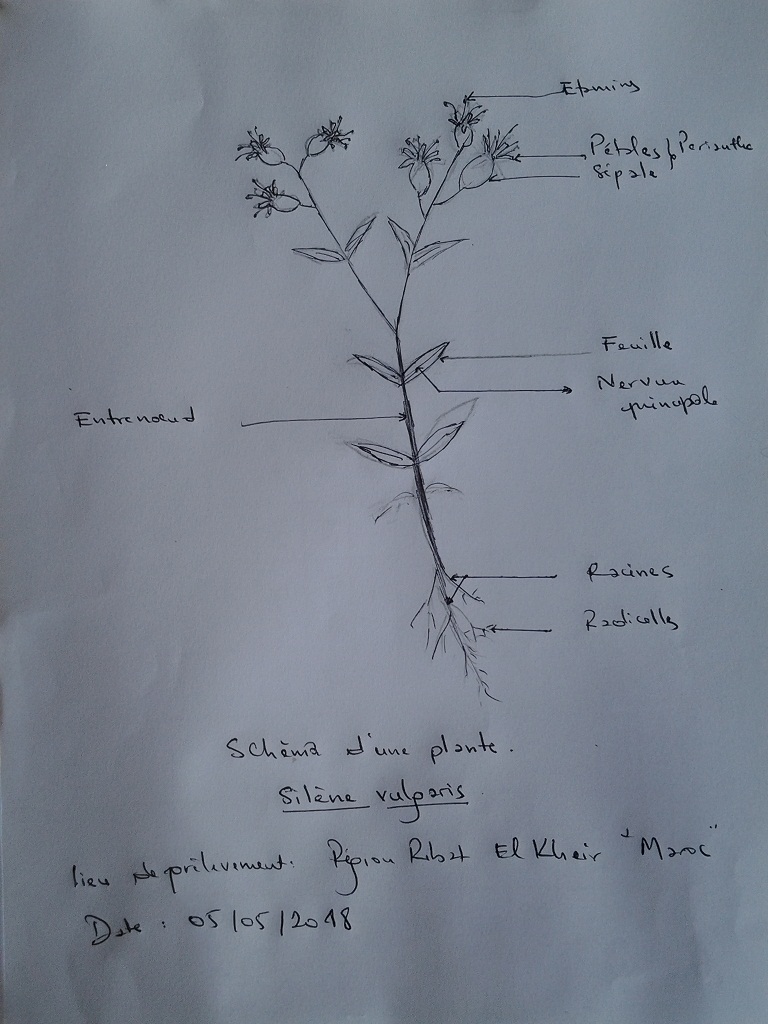 Etamins
Pétales } Perianthe
Sépale
Feuille
Nervure
principale
Entrenoeud
Racines
Radicelles
Schéma d'une plante.
Silène vulgaris
lieu de prélèvement: Région Ribat El Kheir "Maroc"
Date : 05/05/2018